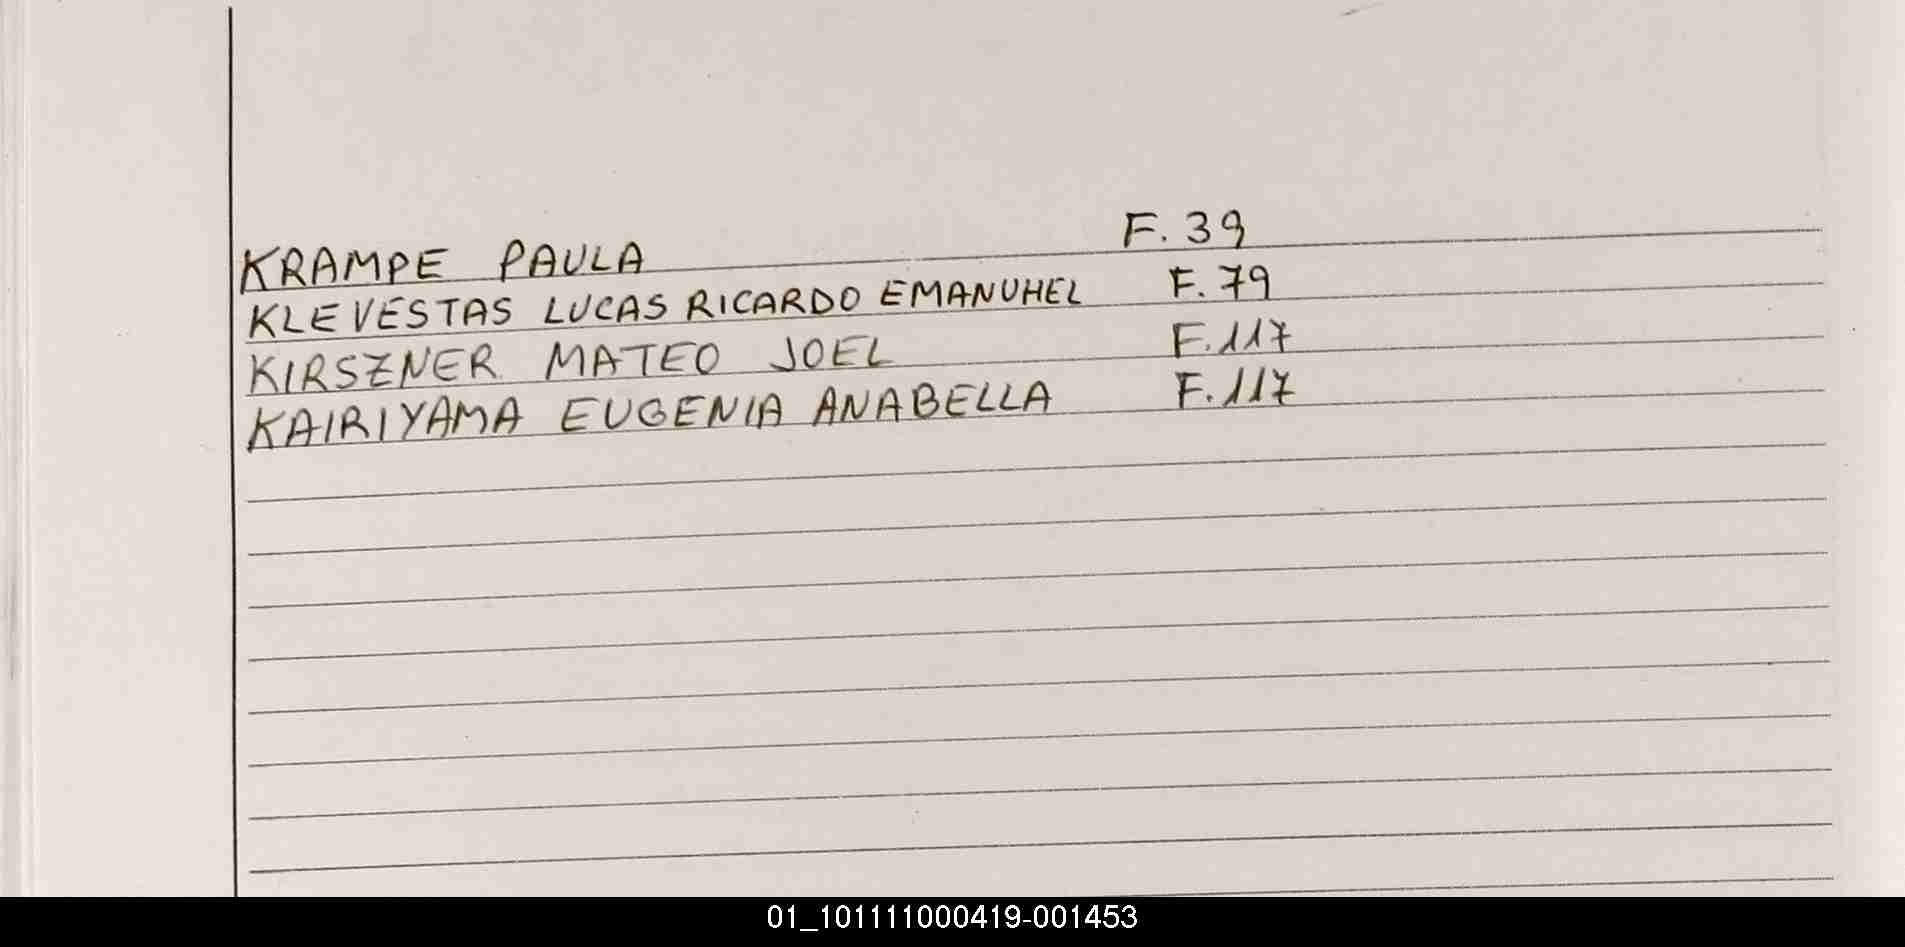 KRAMPE PAULA F. 39
KLEVESTAS LUCAS RICARDO EMANUHEL F. 79
KIRSZNER MATEO JOEL F. 117
KAIRIYAMA EUGENIA ANABELLA F. 117
01_101111000419-001453